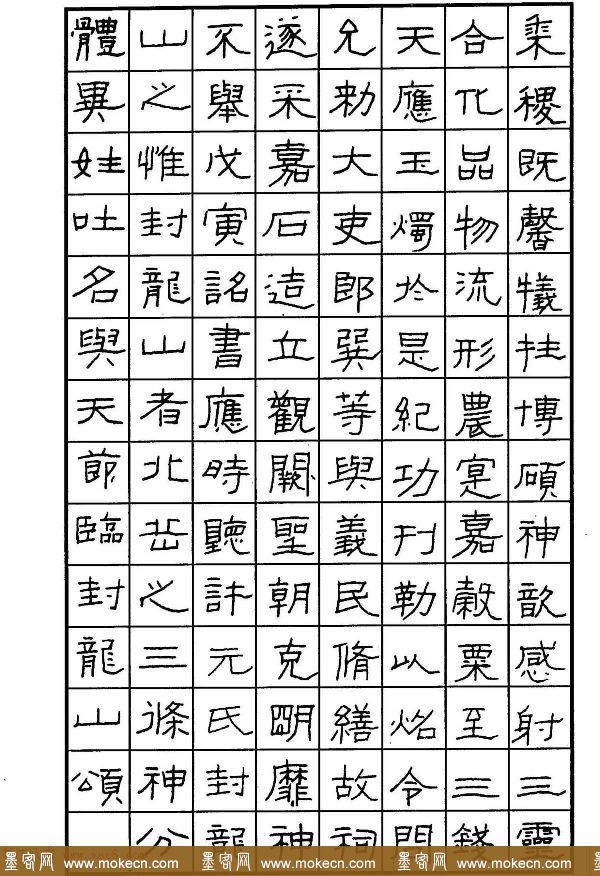 黍稷既馨犧牲博碩神歆感射三靈
合化品物流形農寔嘉穀粟至三錢
天應玉燭於是紀功刊勒以炤令問
允勑大吏郎巽等與義民脩繕故祠
遂采嘉石造立觀闕聖朝克明靡神
不舉戊寅詔書應時聽許元氏封龍
山之惟封龍山者北岳之三條神分
體異姓吐名與天節臨封龍山頌
墨客网 www.mokecn.com 墨客网 www.mokecn.com 墨客网 www.mokecn.com